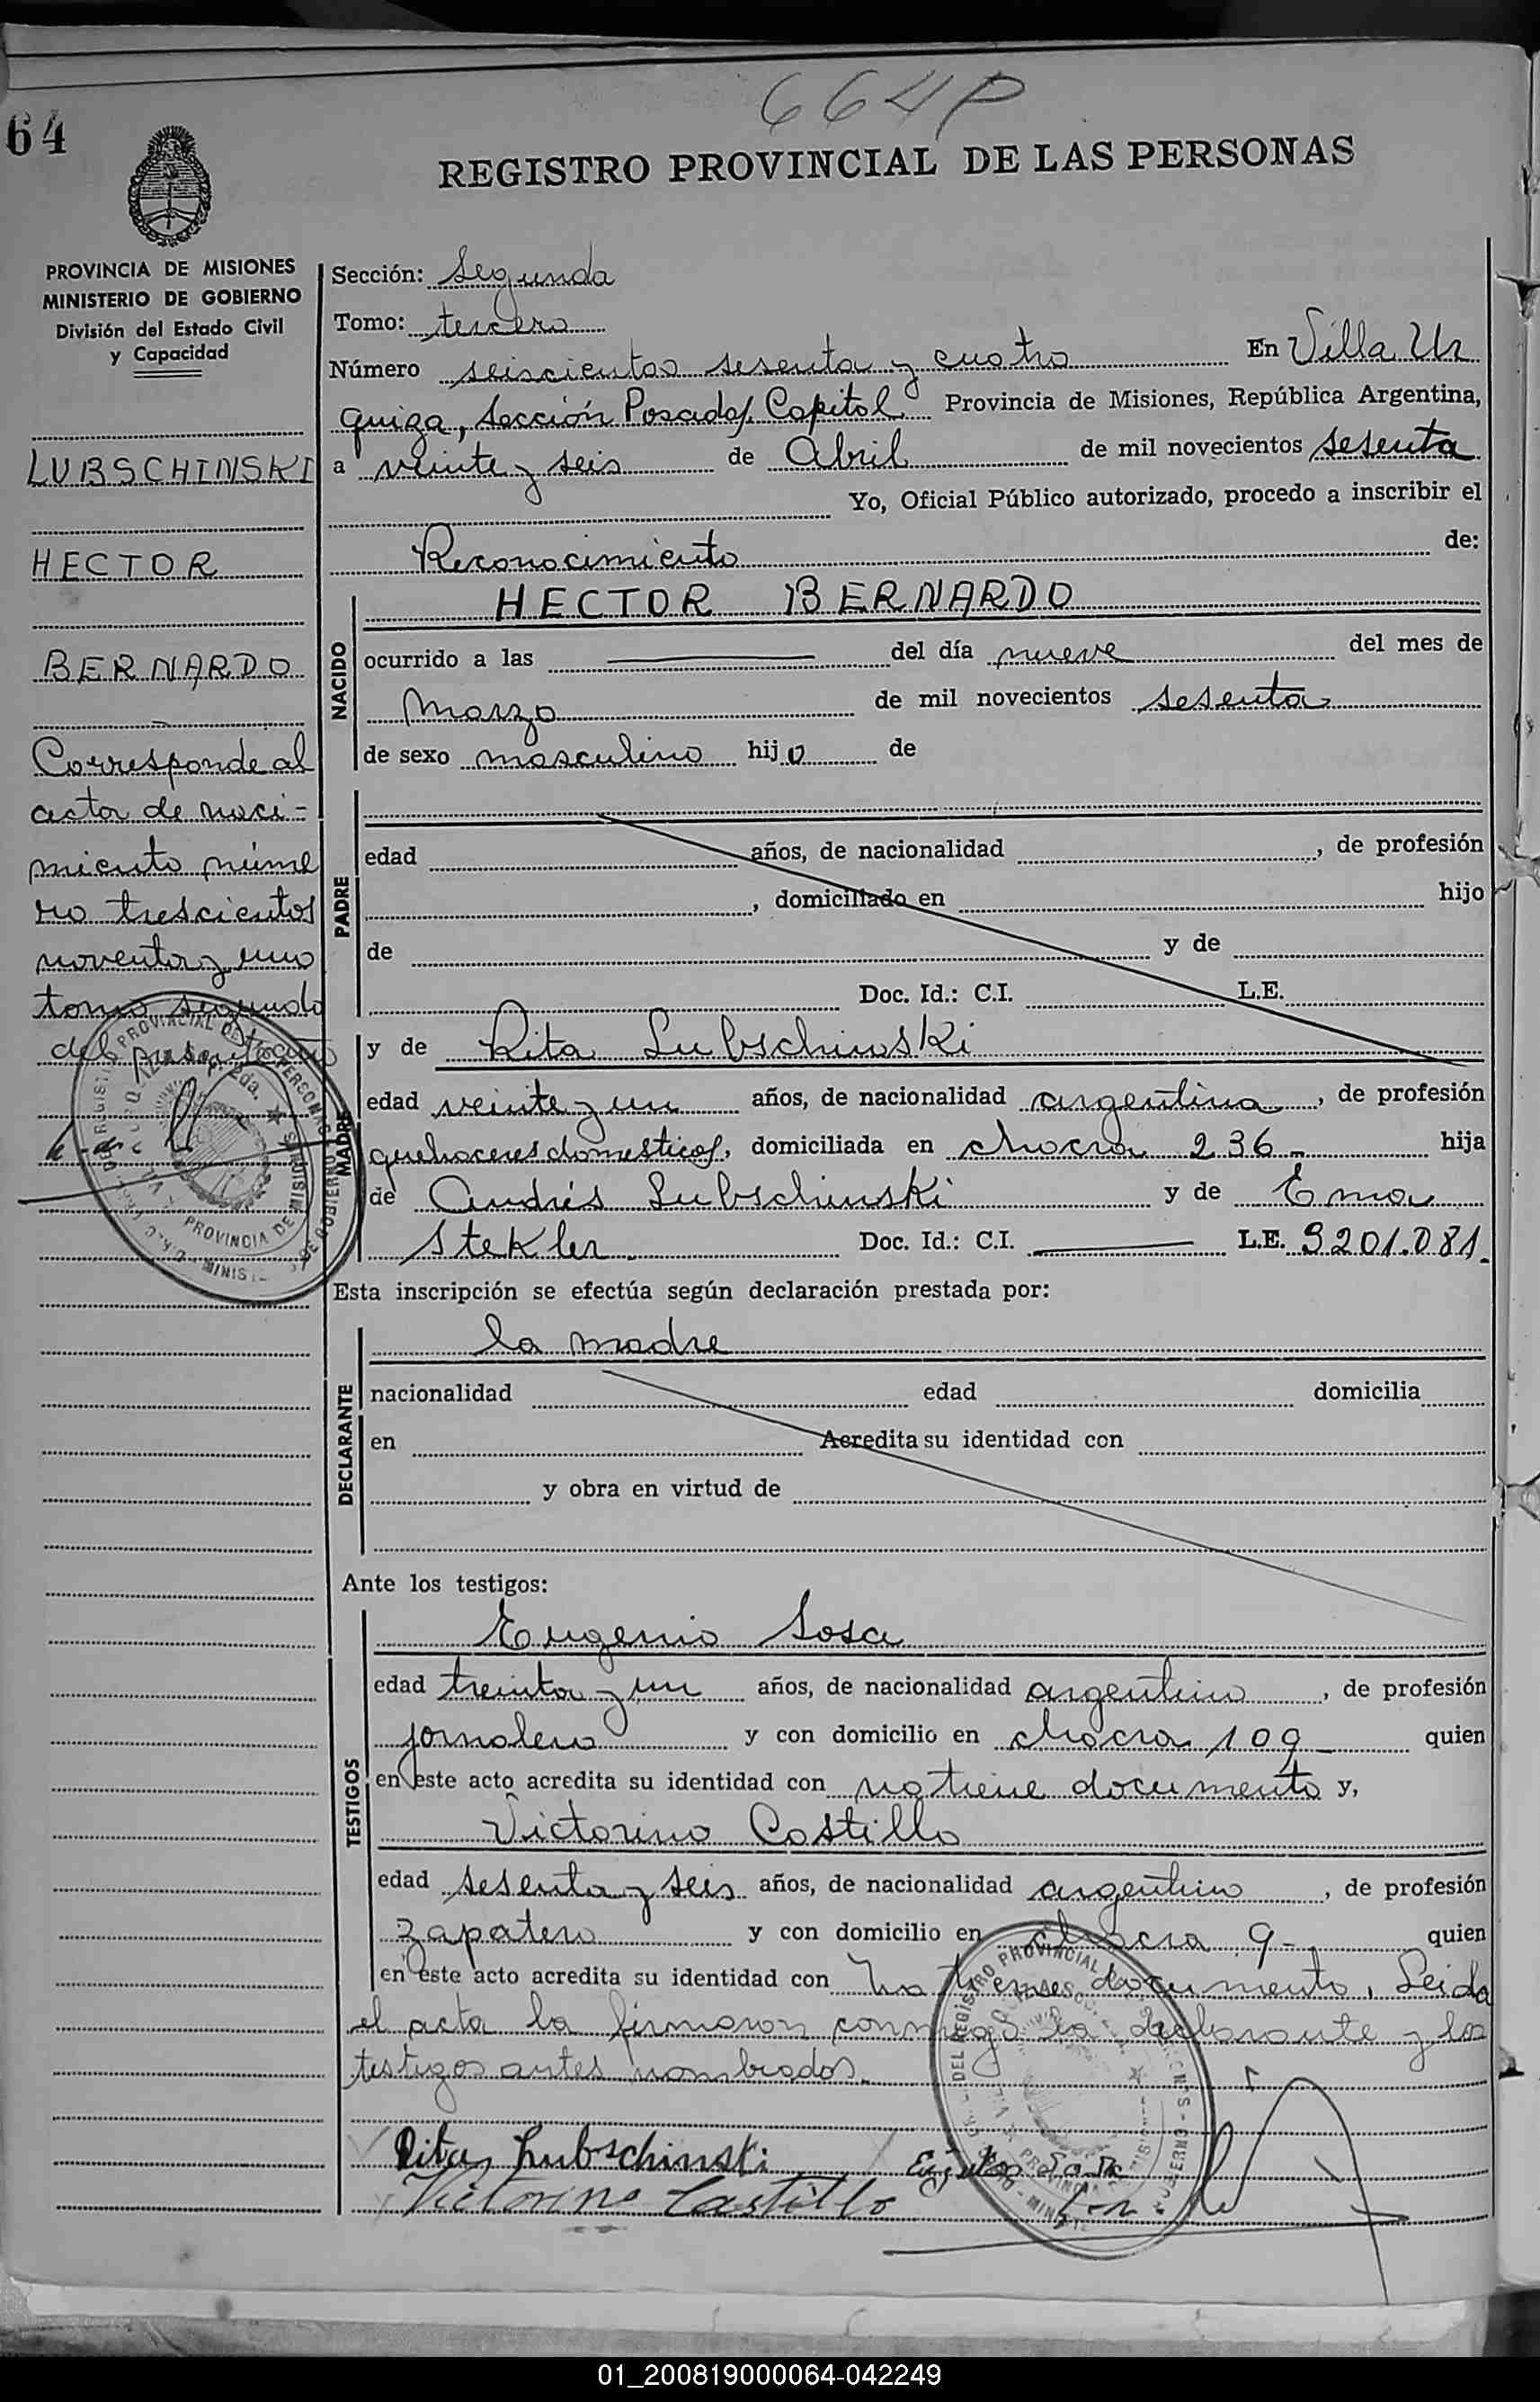 664P
64
REGISTRO PROVINCIAL DE LAS PERSONAS
PROVINCIA DE MISIONES
MINISTERIO DE GOBIERNO
División del Estado Civil
y Capacidad
LUBSCHINSKI
HECTOR
BERNARDO
Corresponde al
acta de naci-
miento núme
ro trescientos
noventa y uno
tomo segundo
del
Sección: Segunda
Tomo: tercero
Número seiscientos sesenta y cuatro En Villa Ur
quiza, Sección Posadas Capital Provincia de Misiones, República Argentina,
a veinte y seis de Abril de mil novecientos sesenta
Yo, Oficial Público autorizado, procedo a inscribir el
Reconocimiento de:
NACIDO
HECTOR BERNARDO
ocurrido a las del día nueve del mes de
Marzo de mil novecientos sesenta
de sexo masculino hijo de
PADRE
edad años, de nacionalidad , de profesión
, domiciliado en hijo
de y de
Doc. Id.: C.I. L.E.
MADRE
y de Rita Lubschinski
edad veinte y un años, de nacionalidad argentina, de profesión
quehaceres domesticos, domiciliada en chacra 236 - hija
de Andrés Lubschinski y de Ema
Stekler Doc. Id.: C.I. L.E. 3201.081.
Esta inscripción se efectúa según declaración prestada por:
DECLARANTE
la madre
nacionalidad edad domicilia
en Acredita su identidad con
y obra en virtud de
Ante los testigos:
TESTIGOS
Eugenio Sosa
edad treinta y un años, de nacionalidad argentino, de profesión
jornalero y con domicilio en chacra 109 quien
en este acto acredita su identidad con no tiene documento y,
Victorino Castillo
edad sesenta y seis años, de nacionalidad argentino, de profesión
zapatero y con domicilio en chacra 9- quien
en este acto acredita su identidad con no tiene documento, Leida
el acta la firmaron conmigo la declarante y los
testigos antes nombrados.
Rita Lubschinski
Victorino Castillo
01_200819000064-042249